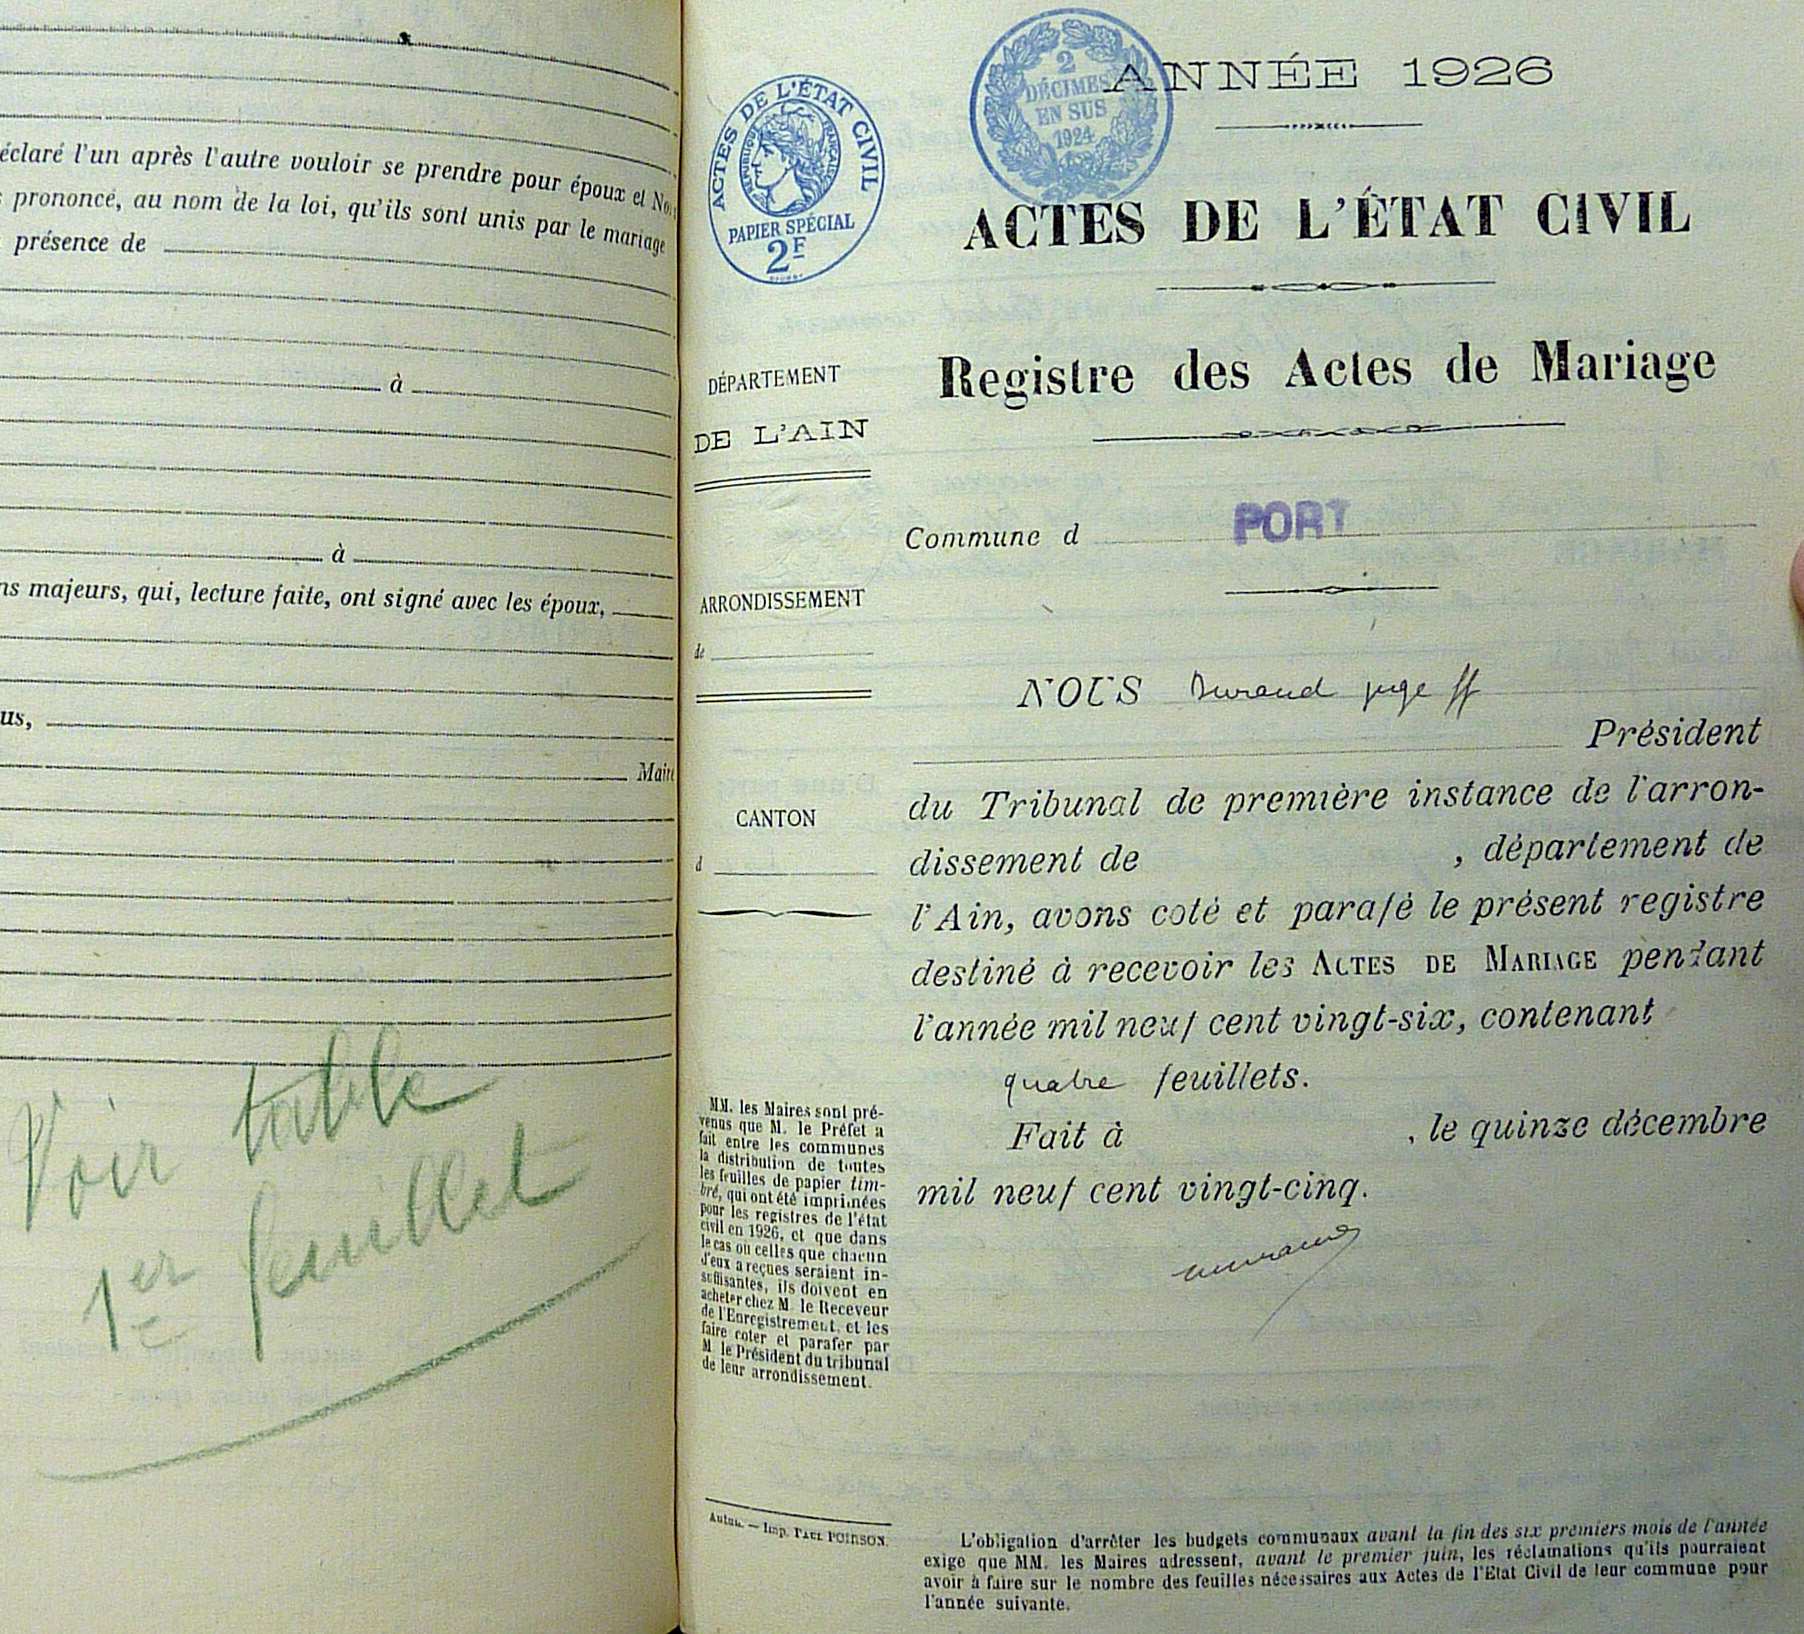 éclaré l'un après l'autre vouloir se prendre pour époux et Nous
prononcé, au nom de la loi, qu'ils sont unis par le mariage
présence de
à
à
ns majeurs, qui, lecture faite, ont signé avec les époux,
us,
Maire
Voir table
1er feuillet
ACTES DE L'ÉTAT CIVIL
RÉPUBLIQUE FRANÇAISE
PAPIER SPÉCIAL
2F
2
DÉCIMES
EN SUS
1924
ANNÉE 1926
ACTES DE L'ÉTAT CIVIL
Registre des Actes de Mariage
DÉPARTEMENT
DE L'AIN
Commune d PORT
ARRONDISSEMENT
de
CANTON
d
NOUS Durand juge ff
Président
du Tribunal de première instance de l'arron-
dissement de , département de
l'Ain, avons coté et parafé le présent registre
destiné à recevoir les ACTES DE MARIAGE pendant
l'année mil neuf cent vingt-six, contenant
quatre feuillets.
Fait à , le quinze décembre
mil neuf cent vingt-cinq.
Durand
MM. les Maires sont pré-
venus que M. le Préfet a
fait entre les communes
la distribution de toutes
les feuilles de papier tim-
bré, qui ont été imprimées
pour les registres de l'état
civil en 1926, et que dans
le cas où celles que chacun
d'eux a reçues seraient in-
suffisantes, ils doivent en
acheter chez M. le Receveur
de l'Enregistrement, et les
faire coter et parafer par
M. le Président du tribunal
de leur arrondissement.
Autun. — Imp. PAUL POIRSON.
L'obligation d'arrêter les budgets communaux avant la fin des six premiers mois de l'année
exige que MM. les Maires adressent, avant le premier juin, les réclamations qu'ils pourraient
avoir à faire sur le nombre des feuilles nécessaires aux Actes de l'Etat Civil de leur commune pour
l'année suivante.